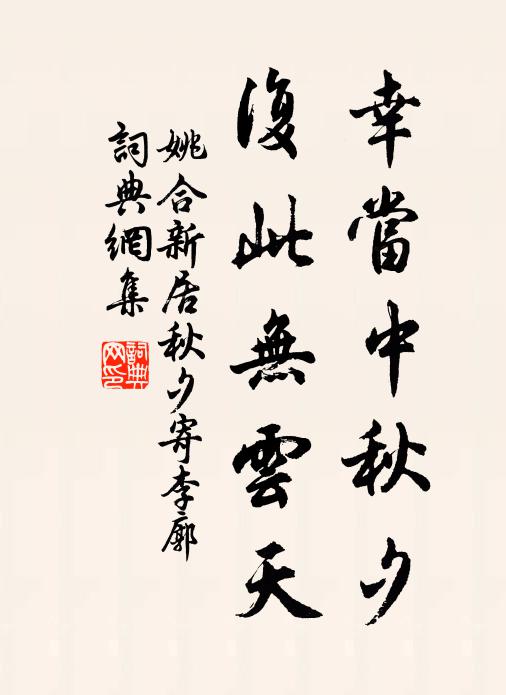 幸當中秋夕
復此無雲天
姚合新居秋夕寄李廓
詞典網集
詞典
网印